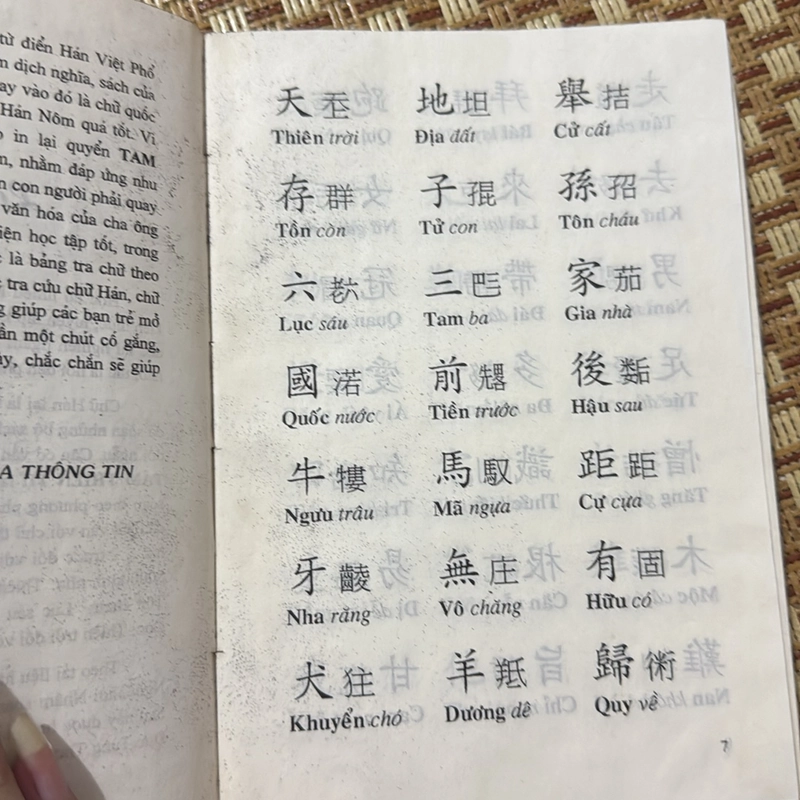 từ điển Hán Việt Phổ
n dịch nghĩa, sách của
ay vào đó là chữ quốc
Hán Nôm quá tốt. Vì
o in lại quyển TAM
n, nhằm đáp ứng nhu
n con người phải quay
văn hóa của cha ông
iện học tập tốt, trong
c là bảng tra chữ theo
c tra cứu chữ Hán, chữ
ng giúp các bạn trẻ mở
ần một chút cố gắng,
ày, chắc chắn sẽ giúp
A THÔNG TIN
天 地 坦 舉 拮
Thiên trời Địa đất Cử cất
存 群 子 𡥵 孫 𡥙
Tồn còn Tử con Tôn cháu
六 𦒹 三 𠀧 家 茄
Lục sáu Tam ba Gia nhà
國 渃 前 後 𡢐
Quốc nước Tiền trước Hậu sau
牛 𤛠 馬 馭 距 距
Ngưu trâu Mã ngựa Cự cựa
牙 𪘵 無 庄 有 固
Nha răng Vô chăng Hữu có
犬 㹥 羊 羝 歸 術
Khuyển chó Dương dê Quy về
7